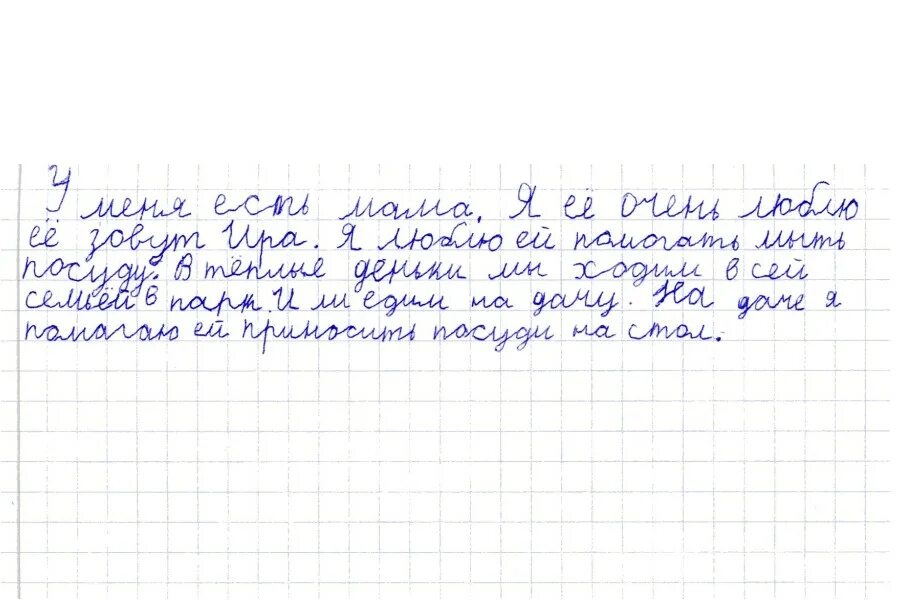 У меня есть мама. Я её очень люблю
её зовут Ира. Я люблю ей помогать мыть
посуду. В тёплые деньки мы ходим в сей
семьёй в парк. И ли едим на дачу. На даче я
помагаю ей приносить посуди на стол.